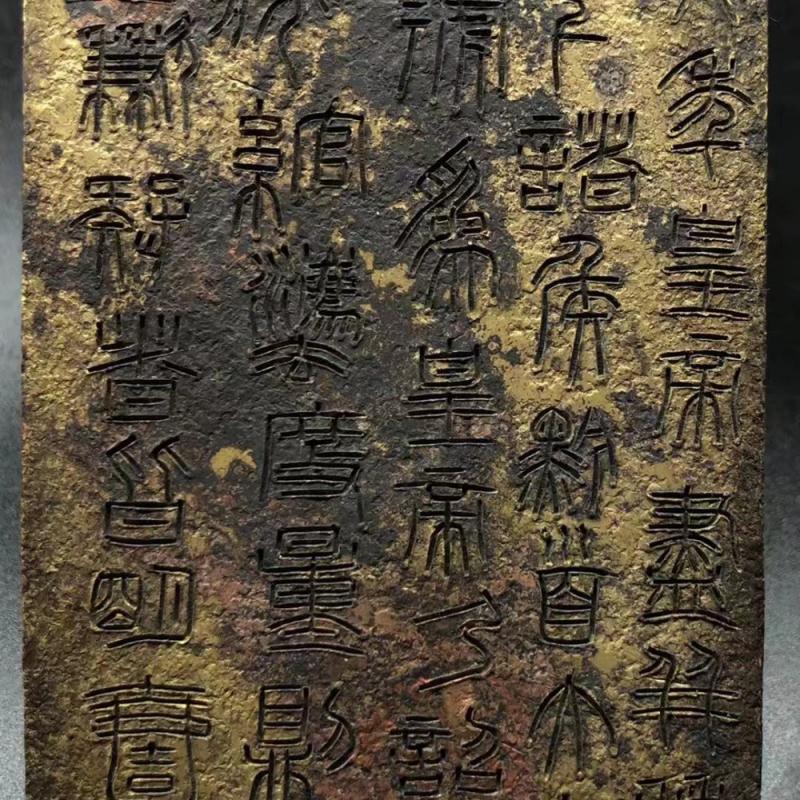 年皇帝盡并兼
下諸侯黔首大
號為皇帝乃詔
狀綰灋度量則
歉疑者皆明壹